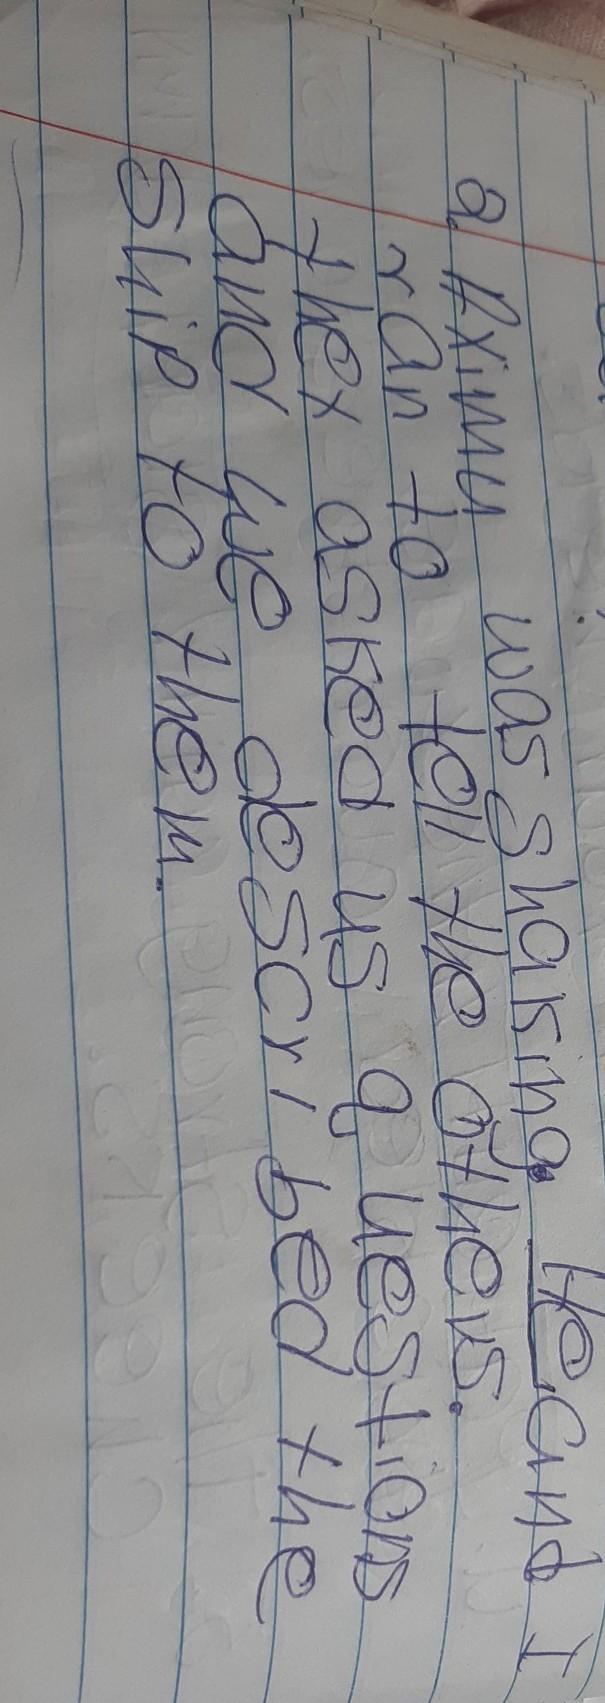 a. Aximu was shaking. He and I
ran to tell the others.
they asked us questions
and we described the
ship to them.